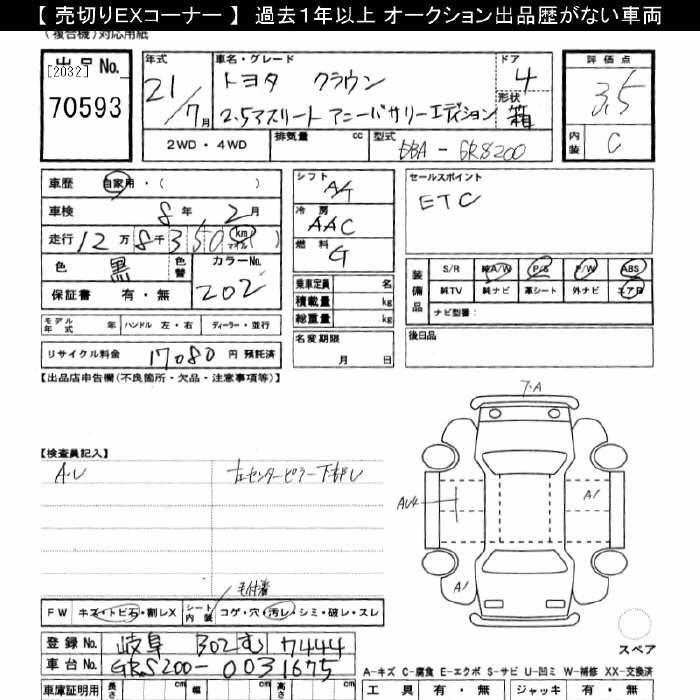 【 売切りEXコーナー 】 過去1年以上 オークション出品歴がない車両
(複合機)対応用紙
出品No.
[2032]
70593
年式
21/7月
車名・グレード
トヨタ クラウン
2.5アスリート アニバーサリーエディション
ドア
4
形状
箱
評価点
3.5
内装
C
2WD・4WD
排気量 cc
型式
DBA-GRS200
車歴 自家用・( )
車検 8年 2月
走行 12万 8千 350 km マイル
色 黒
色替
カラーNo.
202
保証書 有・無
モデル年式 年
ハンドル 左・右
ディーラー・並行
リサイクル料金 17080 円 預託済
シフト
A4
冷房
AAC
燃料
G
乗車定員 名
積載量 kg
総重量 kg
名変期限
月 日
セールスポイント
ETC
装備品
S/R 純A/W P/S P/W ABS
純TV 純ナビ 革シート 外ナビ エアB
ナビ型番:
後日品
【出品店申告欄(不良箇所・欠品・注意事項等)】
【検査員記入】
A・U
左センターピラー下部U
7・A
AU4
A1
A1
毛付着
FW キズ・トビ石・割レX
シート内装 コゲ・穴・汚レ・シミ・破レ・スレ
登録No. 岐阜 302 む 7444
車台No. GRS200-0031675
スペア
A-キズ C-腐食 E-エクボ S-サビ U-凹ミ W-補修 XX-交換済
車庫証明用 長さ cm 幅 cm 高さ cm
工具 有・無 ジャッキ 有・無